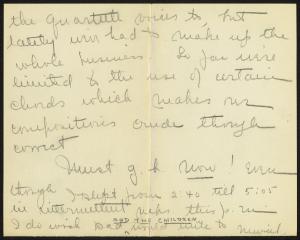 the quartette voices to, but
lately we've had to make up the
whole business. So far we're
limited to the use of certain
chords which makes our
compositions crude though
correct
Must go to now! Even
though I slept from 2:40 till 5:05
in intermittent naps this p.m.
AND THE CHILDREN
I do wish Dad would write to Muriel